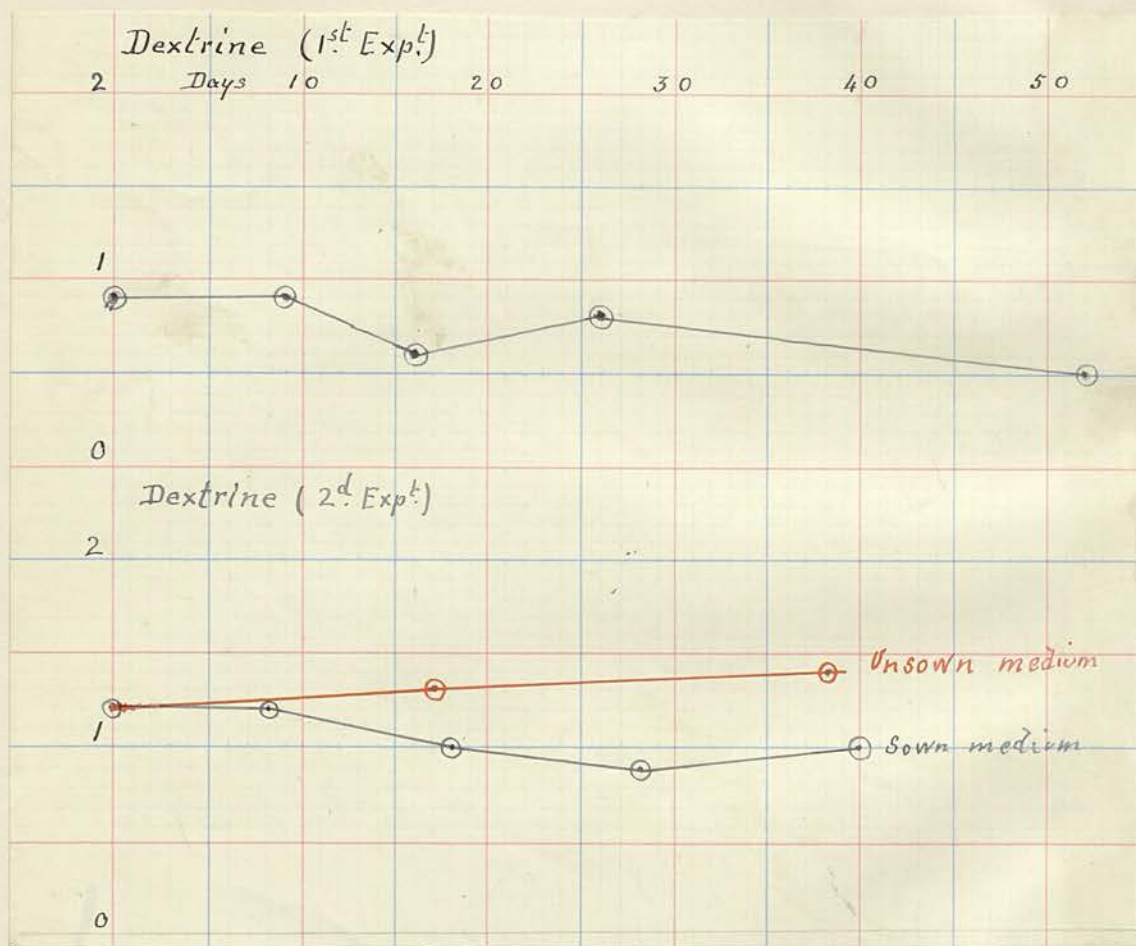 Dextrine (1st Expt)
2 Days 10 20 30 40 50
1
0
Dextrine (2d Expt)
2
Unsown medium
1
Sown medium
0